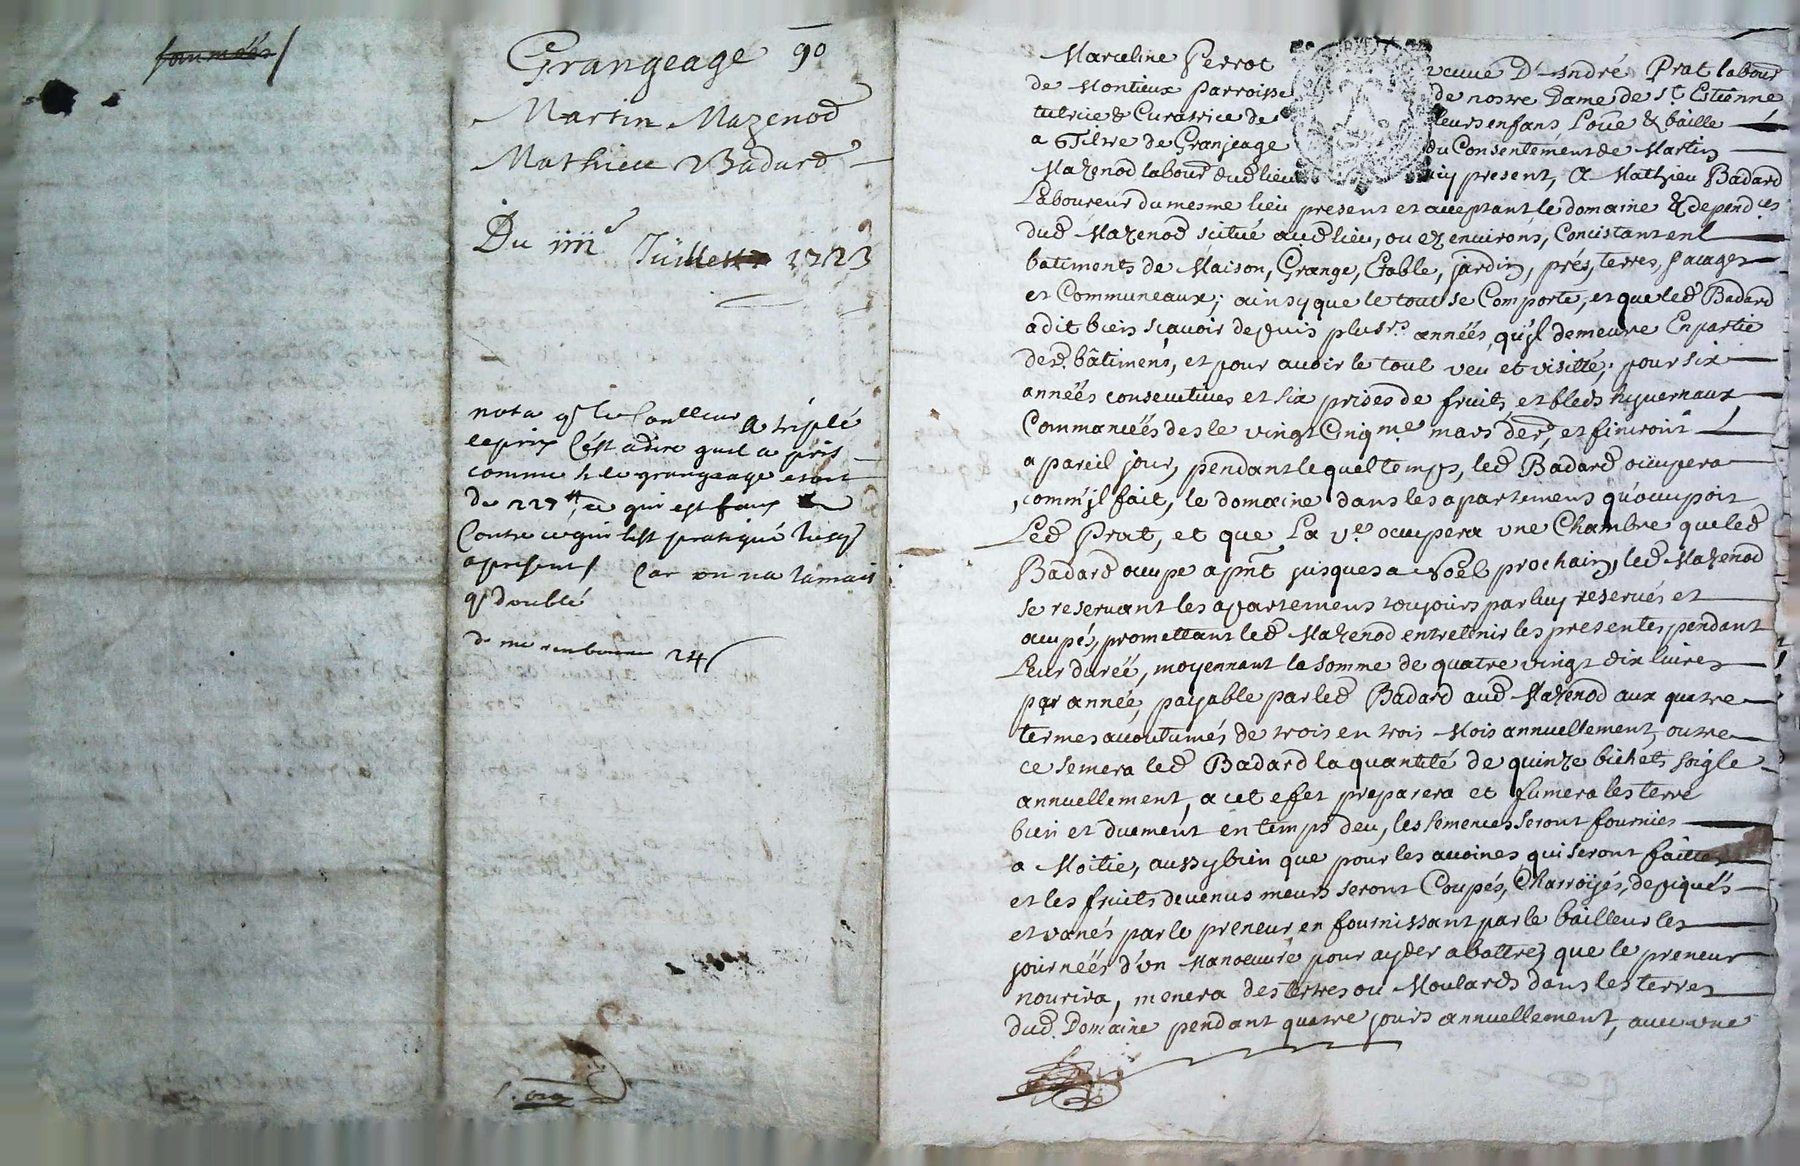 Grangeage 90
Martin Mazenod
Mathieu Badard
Du iiii Juillett 1723
nota q le Coulleur a triplé
le prix C'est a dire quil a pris
comme si le grangeage etoit
de 227 ce qui est faux
Contre ce qui sest pratiqué jusq
apresent Car on na jamais
q doublé
de me 24
Marceline Perrot veuve D'André Prat labour
de Montieux parroisse de nostre Dame de St Estienne
tutrice & Curatrice de leurs enfans Loüe & baille
a Tiltre de Granjeage du Consentement de Martin
Mazenod labour dud lieu icy present, A Mathieu Badard
Laboureur du mesme lieu present et acceptant le domaine & depend.ces
dud Mazenod scitué aud lieu, ou ez environs, Concistant en
batiments de Maison, Grange, Etable, jardin, prés, terres, pacages
et Communeaux; ainsy que le tout se Comporte, et que led Badard
a dit bien sçavoir depuis plusrs années, qu'jl demeure En partie
desd. bâtimens, et pour avoir le tout veu et visitté, pour six
années consecutives et six prises de fruits et bleds hyvernaux
Commancéés des le vingt Cinq me mars der, et finiront
a pareil jour, pendant lequel temps, led Badard occupera
, comm'jl fait, le domaine dans les apartemens qu'occupoit
Led Prat, et que La ve. occupera une Chambre que led
Badard occupe a pñt jusques a Noël prochain, led Mazenod
se reservant les apartemens toujours par luy reservés et
occupés, promettant led Mazenod entretenir les presentes pendant
Leur duréé, moyennant la somme de quatre vingt dix livres
par année, payable par led Badard aud Mazenod aux quatre
termes accoutumés de trois en trois Mois annuellement, outre
ce semera led Badard la quantité de quinze bichets soigle
annuellement, a cet efet preparera et fumera les terre
bien et duement en temps deu, les semences seront fournies
a Moitie, aussy bien que pour les avoines qui seront faittes
et les fruits devenus meurs seront Coupés, Charroÿés, depiqués
et vanés par le preneur en fournissant par le bailleur les
journéés d'un Manoeuvre pour ayder a battre, que le preneur
nourira, menera des terres ou Moulards dans les terres
dud. Domaine pendant quatre jours annuellement, avec une